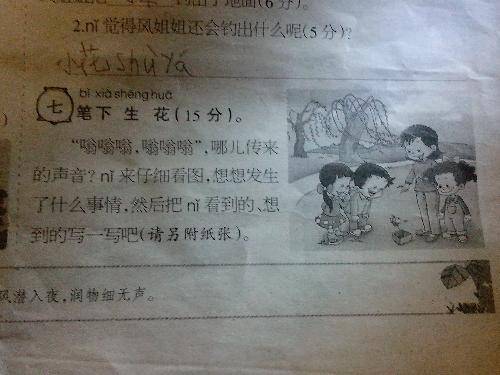 地面(6分)。
2.nǐ觉得风姐姐还会钓出什么呢(5分)?
小花shùyá
bǐ xià shēng huā
七 笔下生花(15分)。
“嗡嗡嗡,嗡嗡嗡”,哪儿传来
的声音?nǐ来仔细看图,想想发生
了什么事情,然后把nǐ看到的、想
到的写一写吧(请另附纸张)。
风潜入夜,润物细无声。